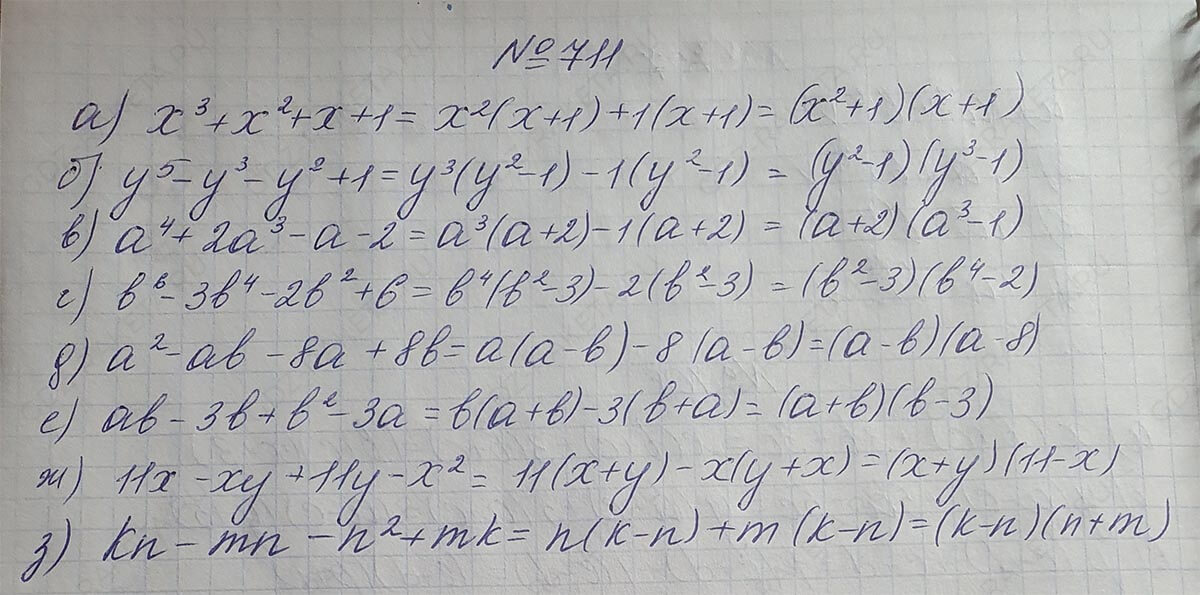 № 711
а) x³ + x² + x + 1 = x²(x+1) + 1(x+1) = (x²+1)(x+1)
б) y⁵ - y³ - y² + 1 = y³(y²-1) - 1(y²-1) = (y²-1)(y³-1)
в) a⁴ + 2a³ - a - 2 = a³(a+2) - 1(a+2) = (a+2)(a³-1)
г) b⁶ - 3b⁴ - 2b² + 6 = b⁴(b²-3) - 2(b²-3) = (b²-3)(b⁴-2)
д) a² - ab - 8a + 8b = a(a-b) - 8(a-b) = (a-b)(a-8)
е) ab - 3b + b² - 3a = b(a+b) - 3(b+a) = (a+b)(b-3)
ж) 11x - xy + 11y - x² = 11(x+y) - x(y+x) = (x+y)(11-x)
з) kn - mn - n² + mk = n(k-n) + m(k-n) = (k-n)(n+m)